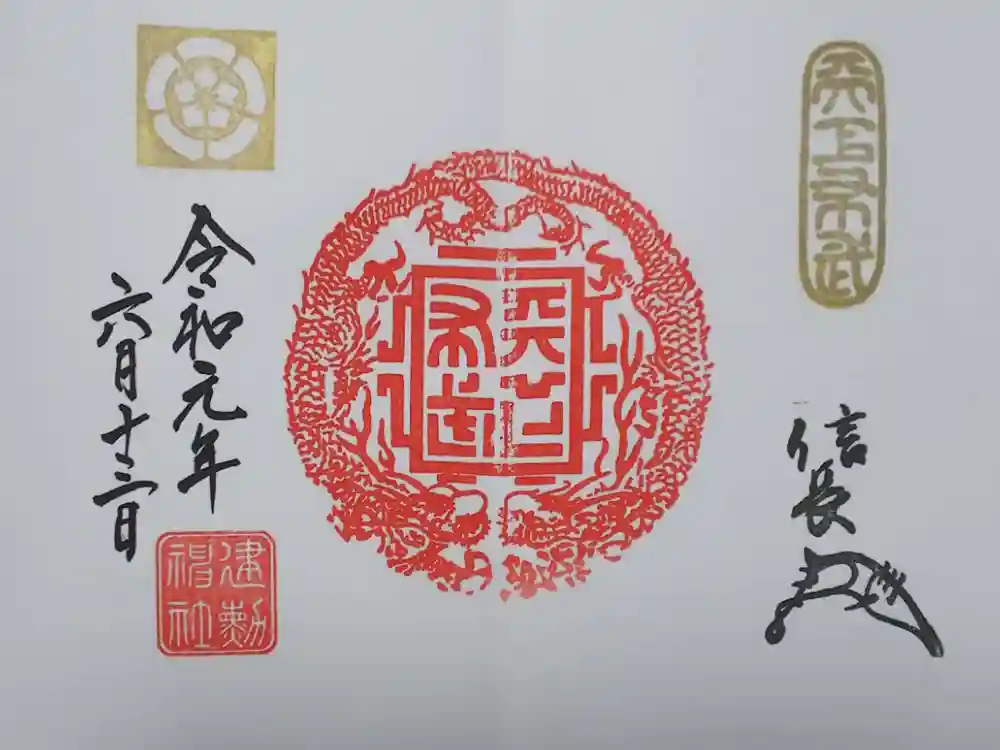 天下布武
信長
天下
布武
令和元年
六月十三日
建勲
神社